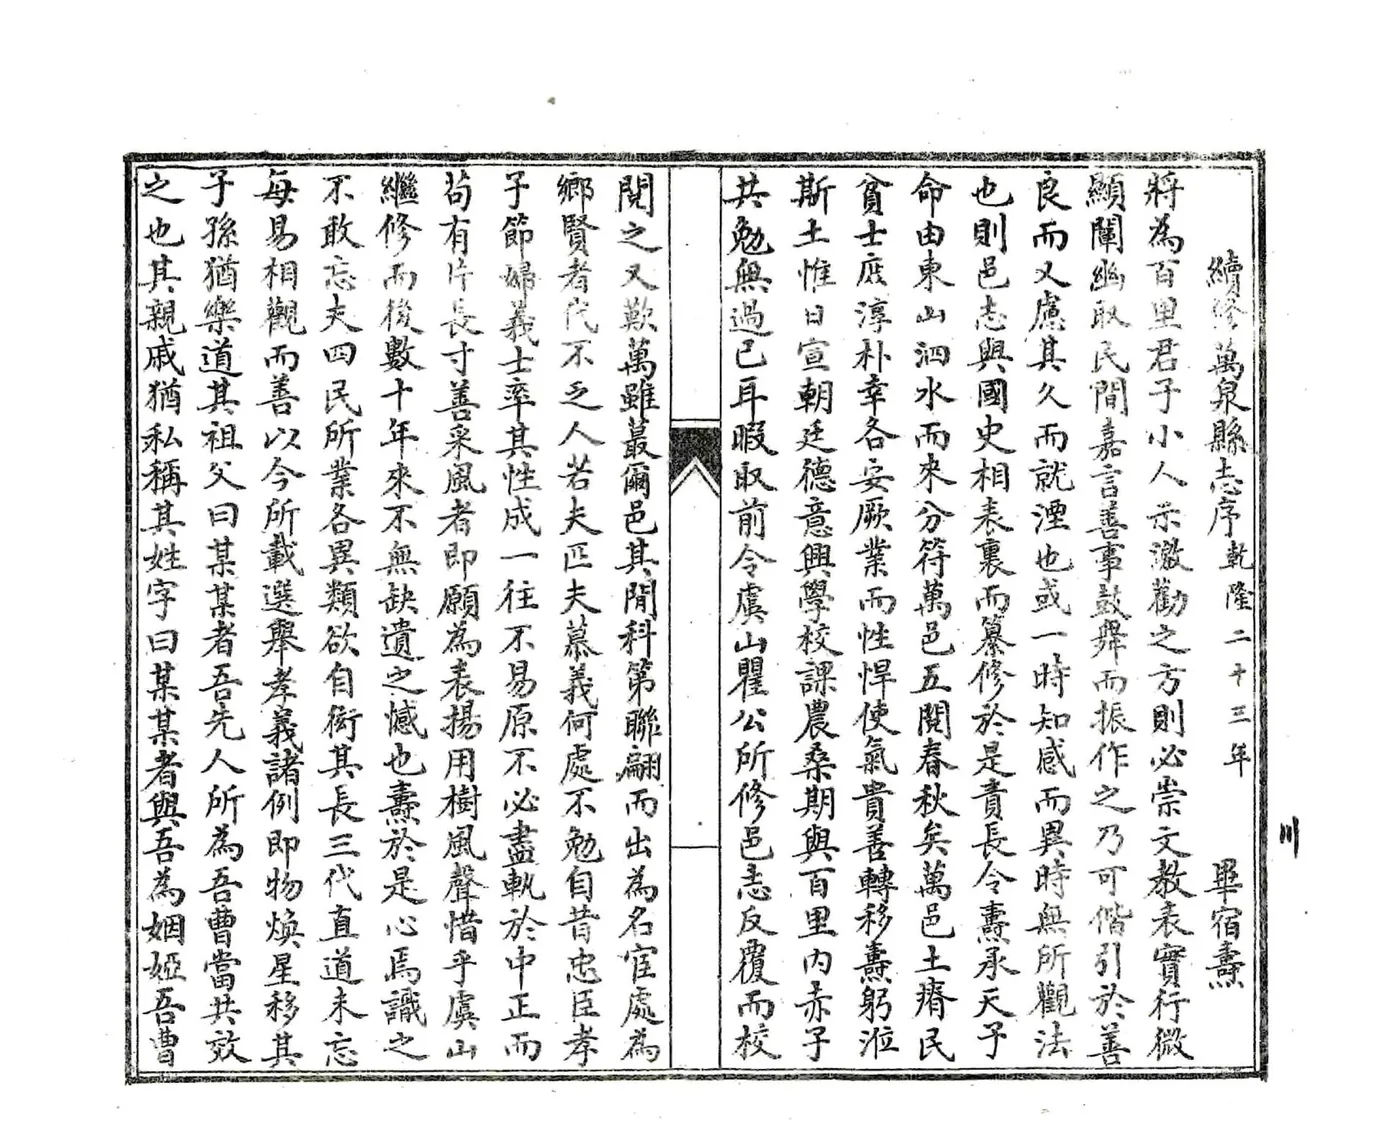 續修萬泉縣志序乾隆二十三年 畢宿燾
將為百里君子小人示激勸之方則必崇文教表實行微
顯闡幽取民間嘉言善事鼓舞而振作之乃可偕引於善
良而又慮其久而就湮也或一時知感而異時無所觀法
也則邑志與國史相表裏而纂修於是責長令燾承天子
命由東山泗水而來分符萬邑五閱春秋矣萬邑土瘠民
貧士庶淳朴幸各安厥業而性悍使氣貴善轉移燾躬涖
斯土惟日宣朝廷德意興學校課農桑期與百里內赤子
共勉無過已耳暇取前令虞山瞿公所修邑志反覆而校
閱之又歎萬雖蕞爾邑其間科第聯翩而出為名宦處為
鄉賢者代不乏人若夫匹夫慕義何處不勉自昔忠臣孝
子節婦義士率其性成一往不易原不必盡軌於中正而
苟有片長寸善采風者即願為表揚用樹風聲惜乎虞山
繼修而後數十年來不無缺遺之憾也燾於是心焉識之
不敢忘夫四民所業各異類欲自衒其長三代直道未忘
每易相觀而善以今所載選舉孝義諸例即物煥星移其
子孫猶樂道其祖父曰某某者吾先人所為吾曹當共效
之也其親戚猶私稱其姓字曰某某者與吾為姻婭吾曹
川